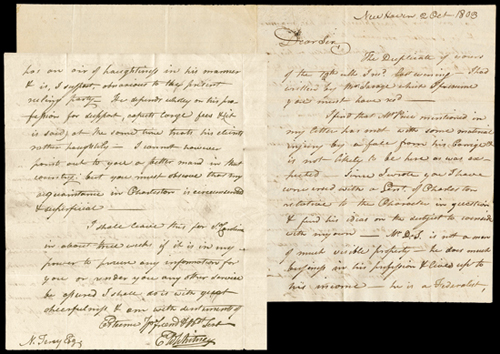 New Haven 2 Oct 1803
Dear Sir,
The Duplicate of yours
of the 19th ult. I rec'd this evening – I had
written by Mr which I presume
you must have rec'd –
I find that Mr mentioned in
my letter has met with some material
injury by a fall from his Carriage &
is not likely to be here as was ex-
pected – Since I wrote you I have
conversed with a Gent. of Charleston
relative to the Character in question
& find his ideas on the subject to coincide
with my own – Mr is not a man
of much visible property – he does much
business in his profession & lives up to
his income – he is a Federalist,
has an air of haughtiness in his manner
& is, I suspect, obnoxious to the present
ruling party. He depends wholly on his pro-
fession for support, expects large fees & it
is said, at the same time treats his clients
rather haughtily – I cannot however
point out to you a better man in that
country; but you must observe that my
acquaintance in Charleston is circumscribed
& superficial –
I shall leave this for So Carolina
in about three weeks if it is in my
power to procure any information for
you or render you any other service
be assured I shall do it with great
cheerfulness & am with sentiments of
Esteem Yr Friend & Obt Servt
E Whitney
N. Terry Esq